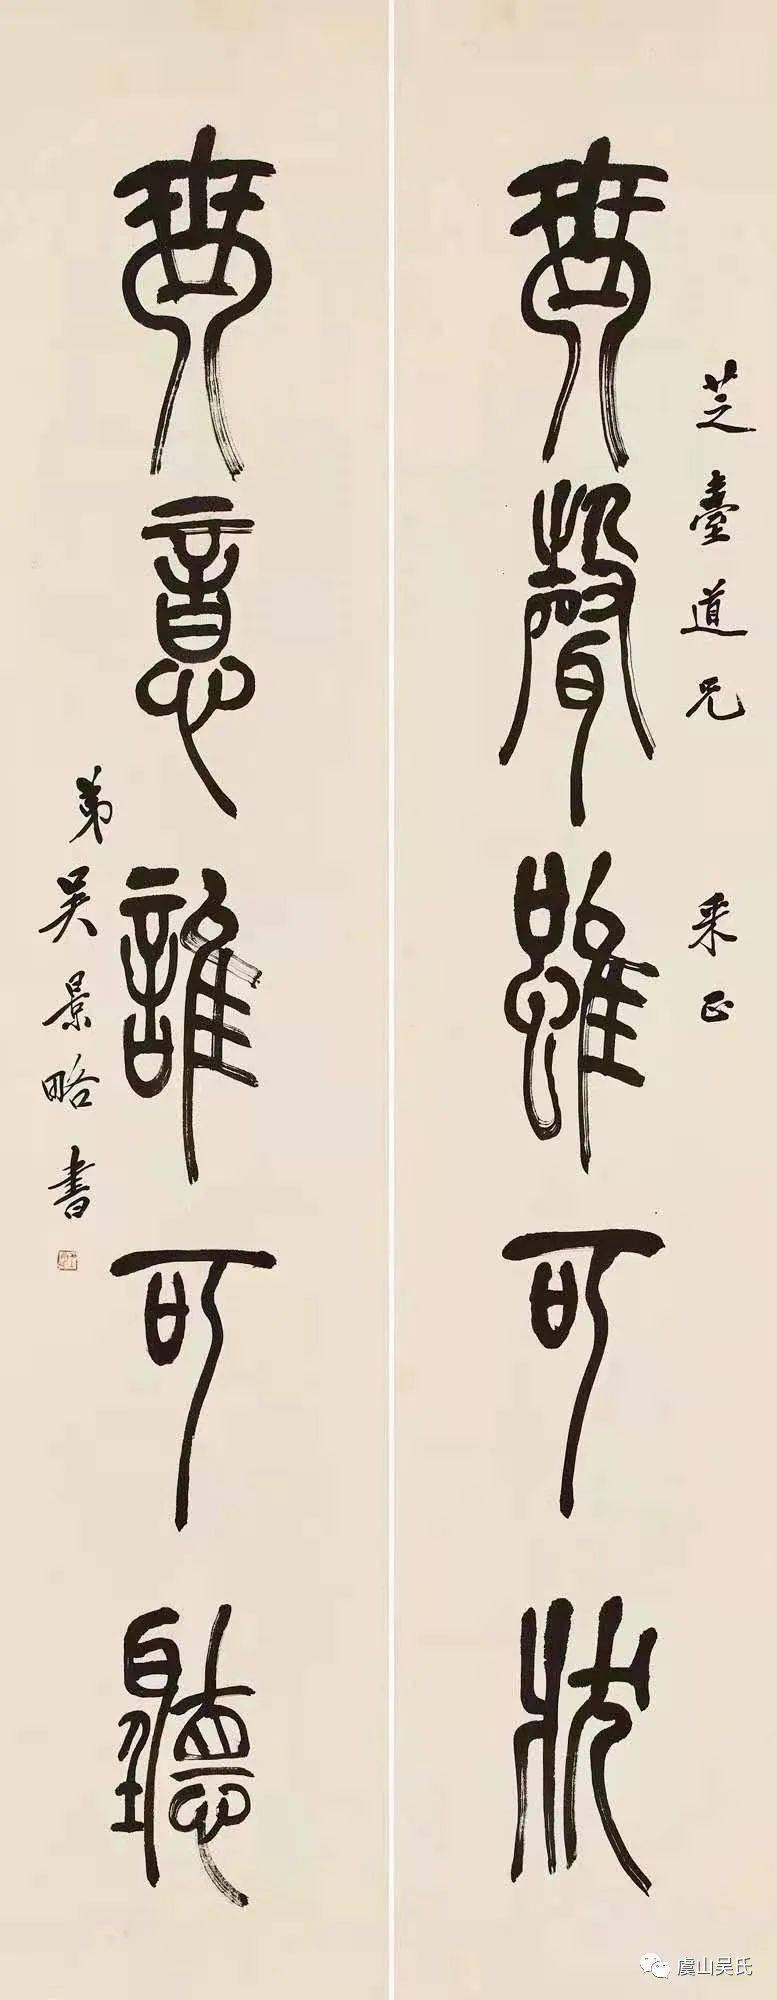 芝臺道兄 采正
琴聲雖可狀
琴意誰可聽
弟吳景略書
虞山吴氏